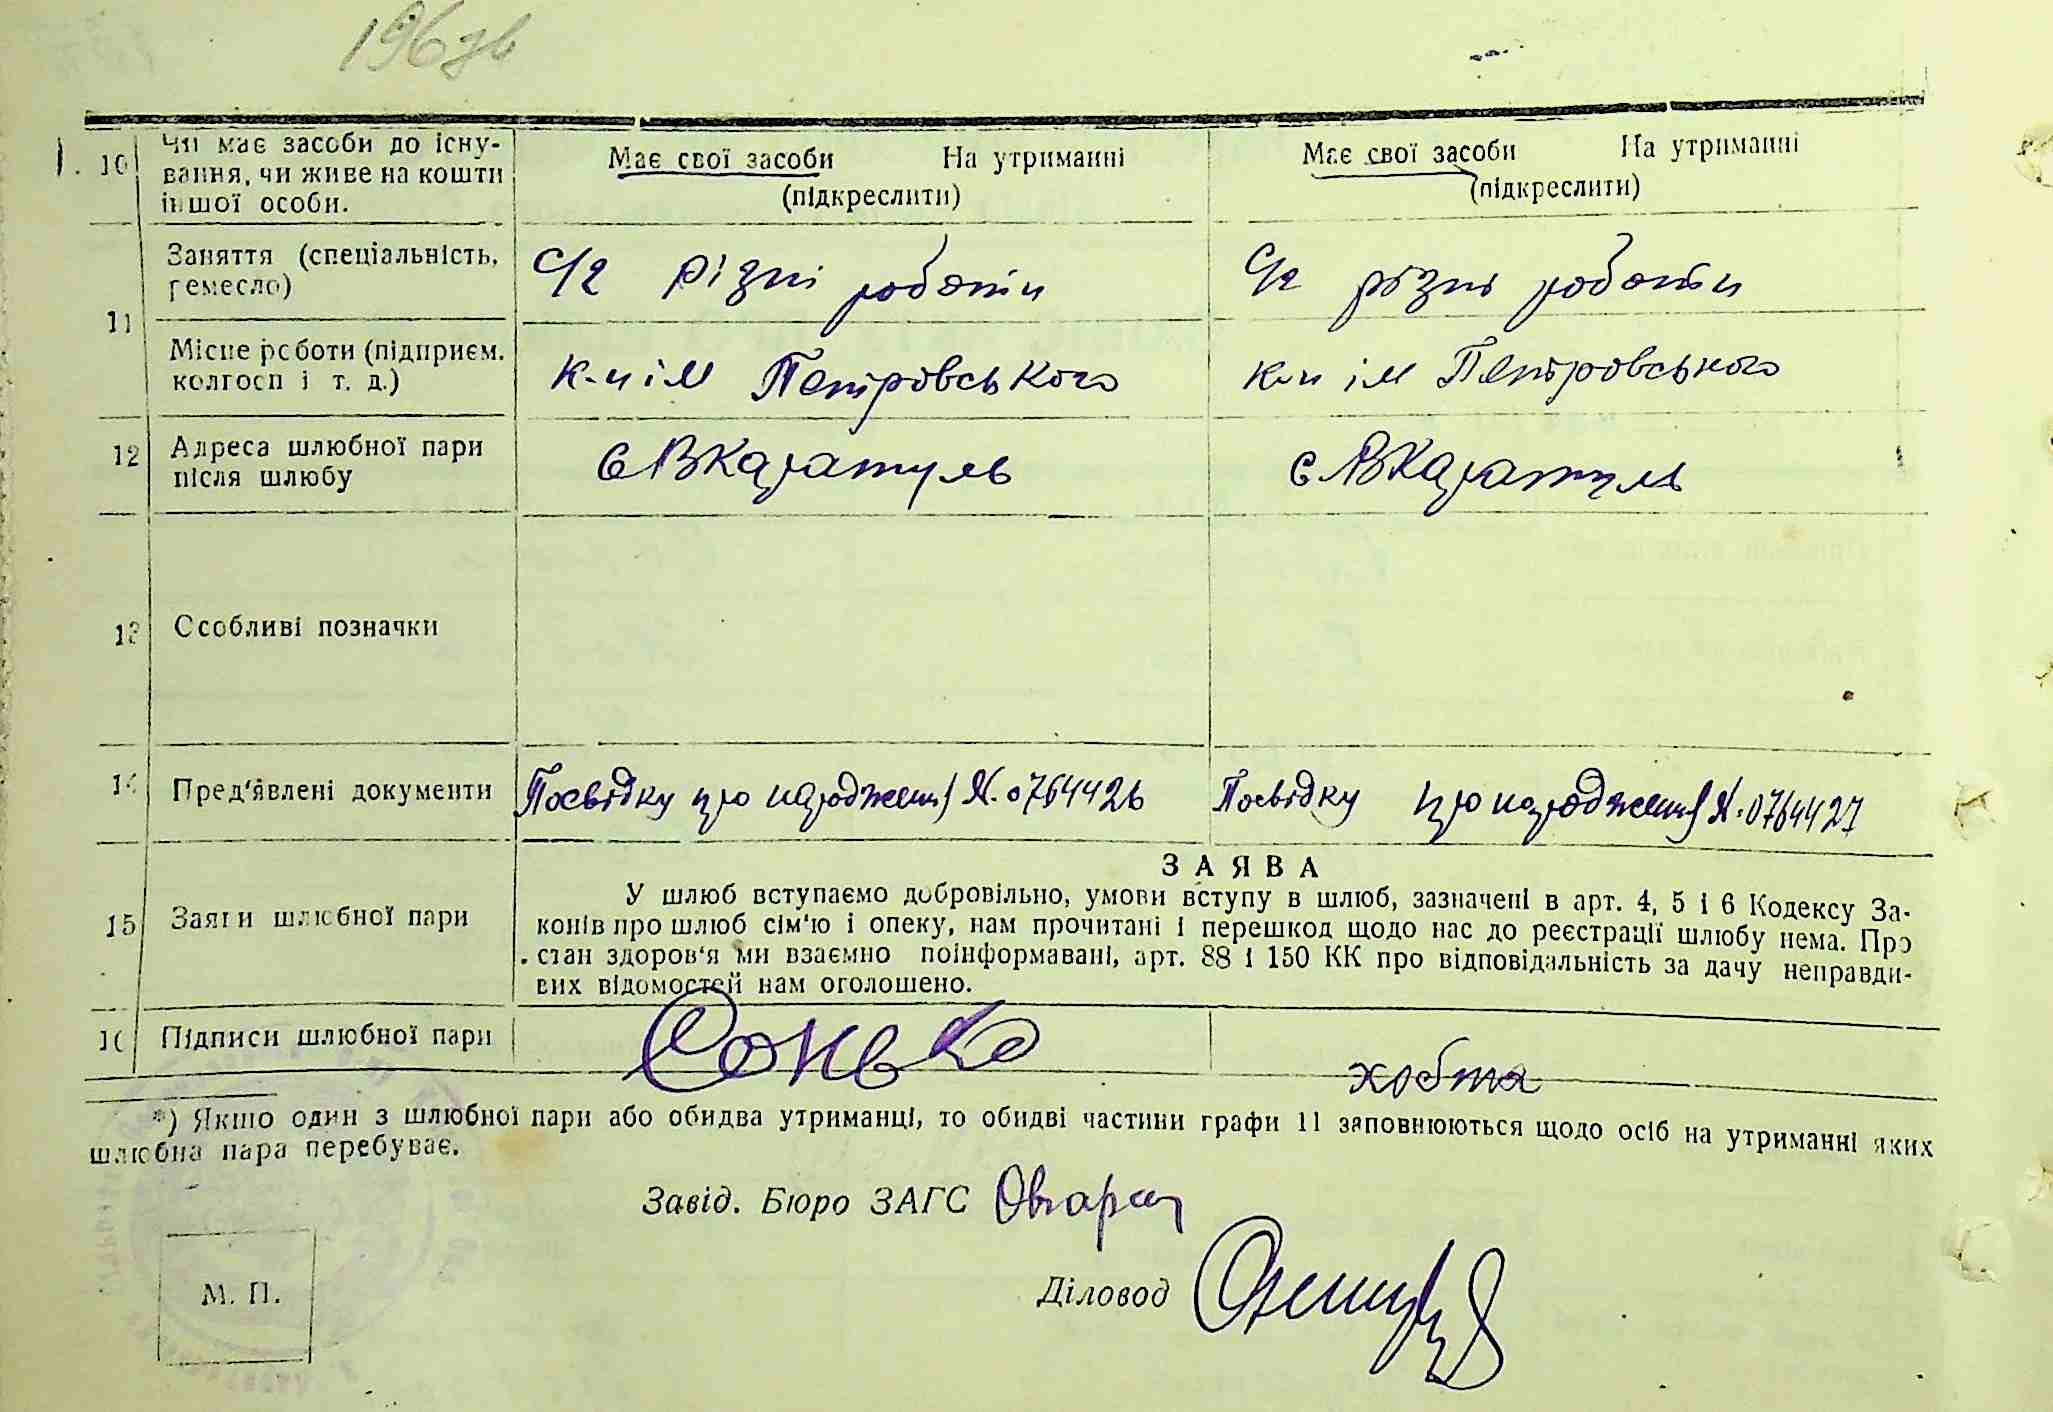 196зв
10 Чи має засоби до існу-
вання, чи живе на кошти
іншої особи.
Має свої засоби На утриманні
(підкреслити)
Має свої засоби На утриманні
(підкреслити)
11
Заняття (спеціальність,
ремесло)
С/г різні роботи
С/г різні роботи
Місце роботи (підприєм.
колгосп і т. д.)
к-п ім Петровського
к-п ім Петровського
12 Адреса шлюбної пари
після шлюбу
с В Каратуль
с В Каратуль
13 Особливі позначки
14 Пред'явлені документи
Посвідку про народження N. 0764426
Посвідку про народження N. 0764427
15 Заяви шлюбної пари
ЗАЯВА
У шлюб вступаємо добровільно, умови вступу в шлюб, зазначені в арт. 4, 5 і 6 Кодексу За-
конів про шлюб сім'ю і опеку, нам прочитані і перешкод щодо нас до реєстрації шлюбу нема. Про
стан здоров'я ми взаємно поінформавані, арт. 88 і 150 КК про відповідальність за дачу неправди-
вих відомостей нам оголошено.
16 Підписи шлюбної пари
Сонько
хобта
*) Якшо один з шлюбної пари або обидва утриманці, то обидві частини графи 11 заповнюються щодо осіб на утриманні яких
шлюбна пара перебуває.
Завід. Бюро ЗАГС
Діловод
М. П.